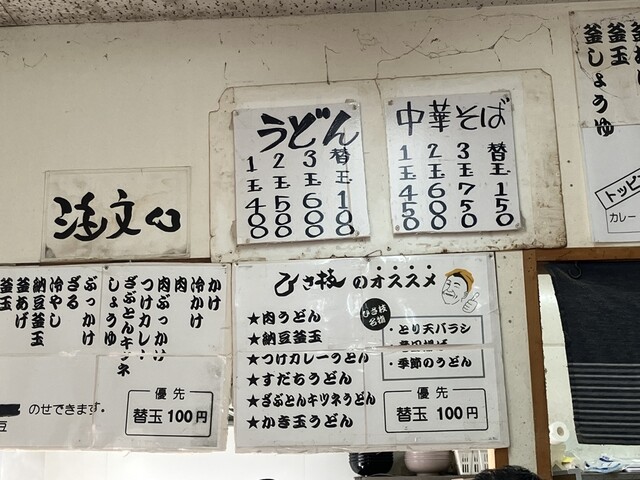 うどん
替玉100
3玉600
2玉500
1玉400
中華そば
替玉150
3玉750
2玉600
1玉450
釜玉
釜しょうゆ
トッピ
カレー
注文心
かけ
冷かけ
肉
肉ぶっかけ
つけカレー
ざぶとんキツネ
しょうゆ
ぶっかけ
ざる
冷やし
納豆釜玉
釜あげ
釜玉
のせできます.
豆
優先
替玉 100円
ひさ枝のオススメ
ひさ枝名物
★肉うどん
★納豆釜玉
★つけカレーうどん
★すだちうどん
★ざぶとんキツネうどん
★かき玉うどん
・とり天バラシ
・季節のうどん
優先
替玉 100円